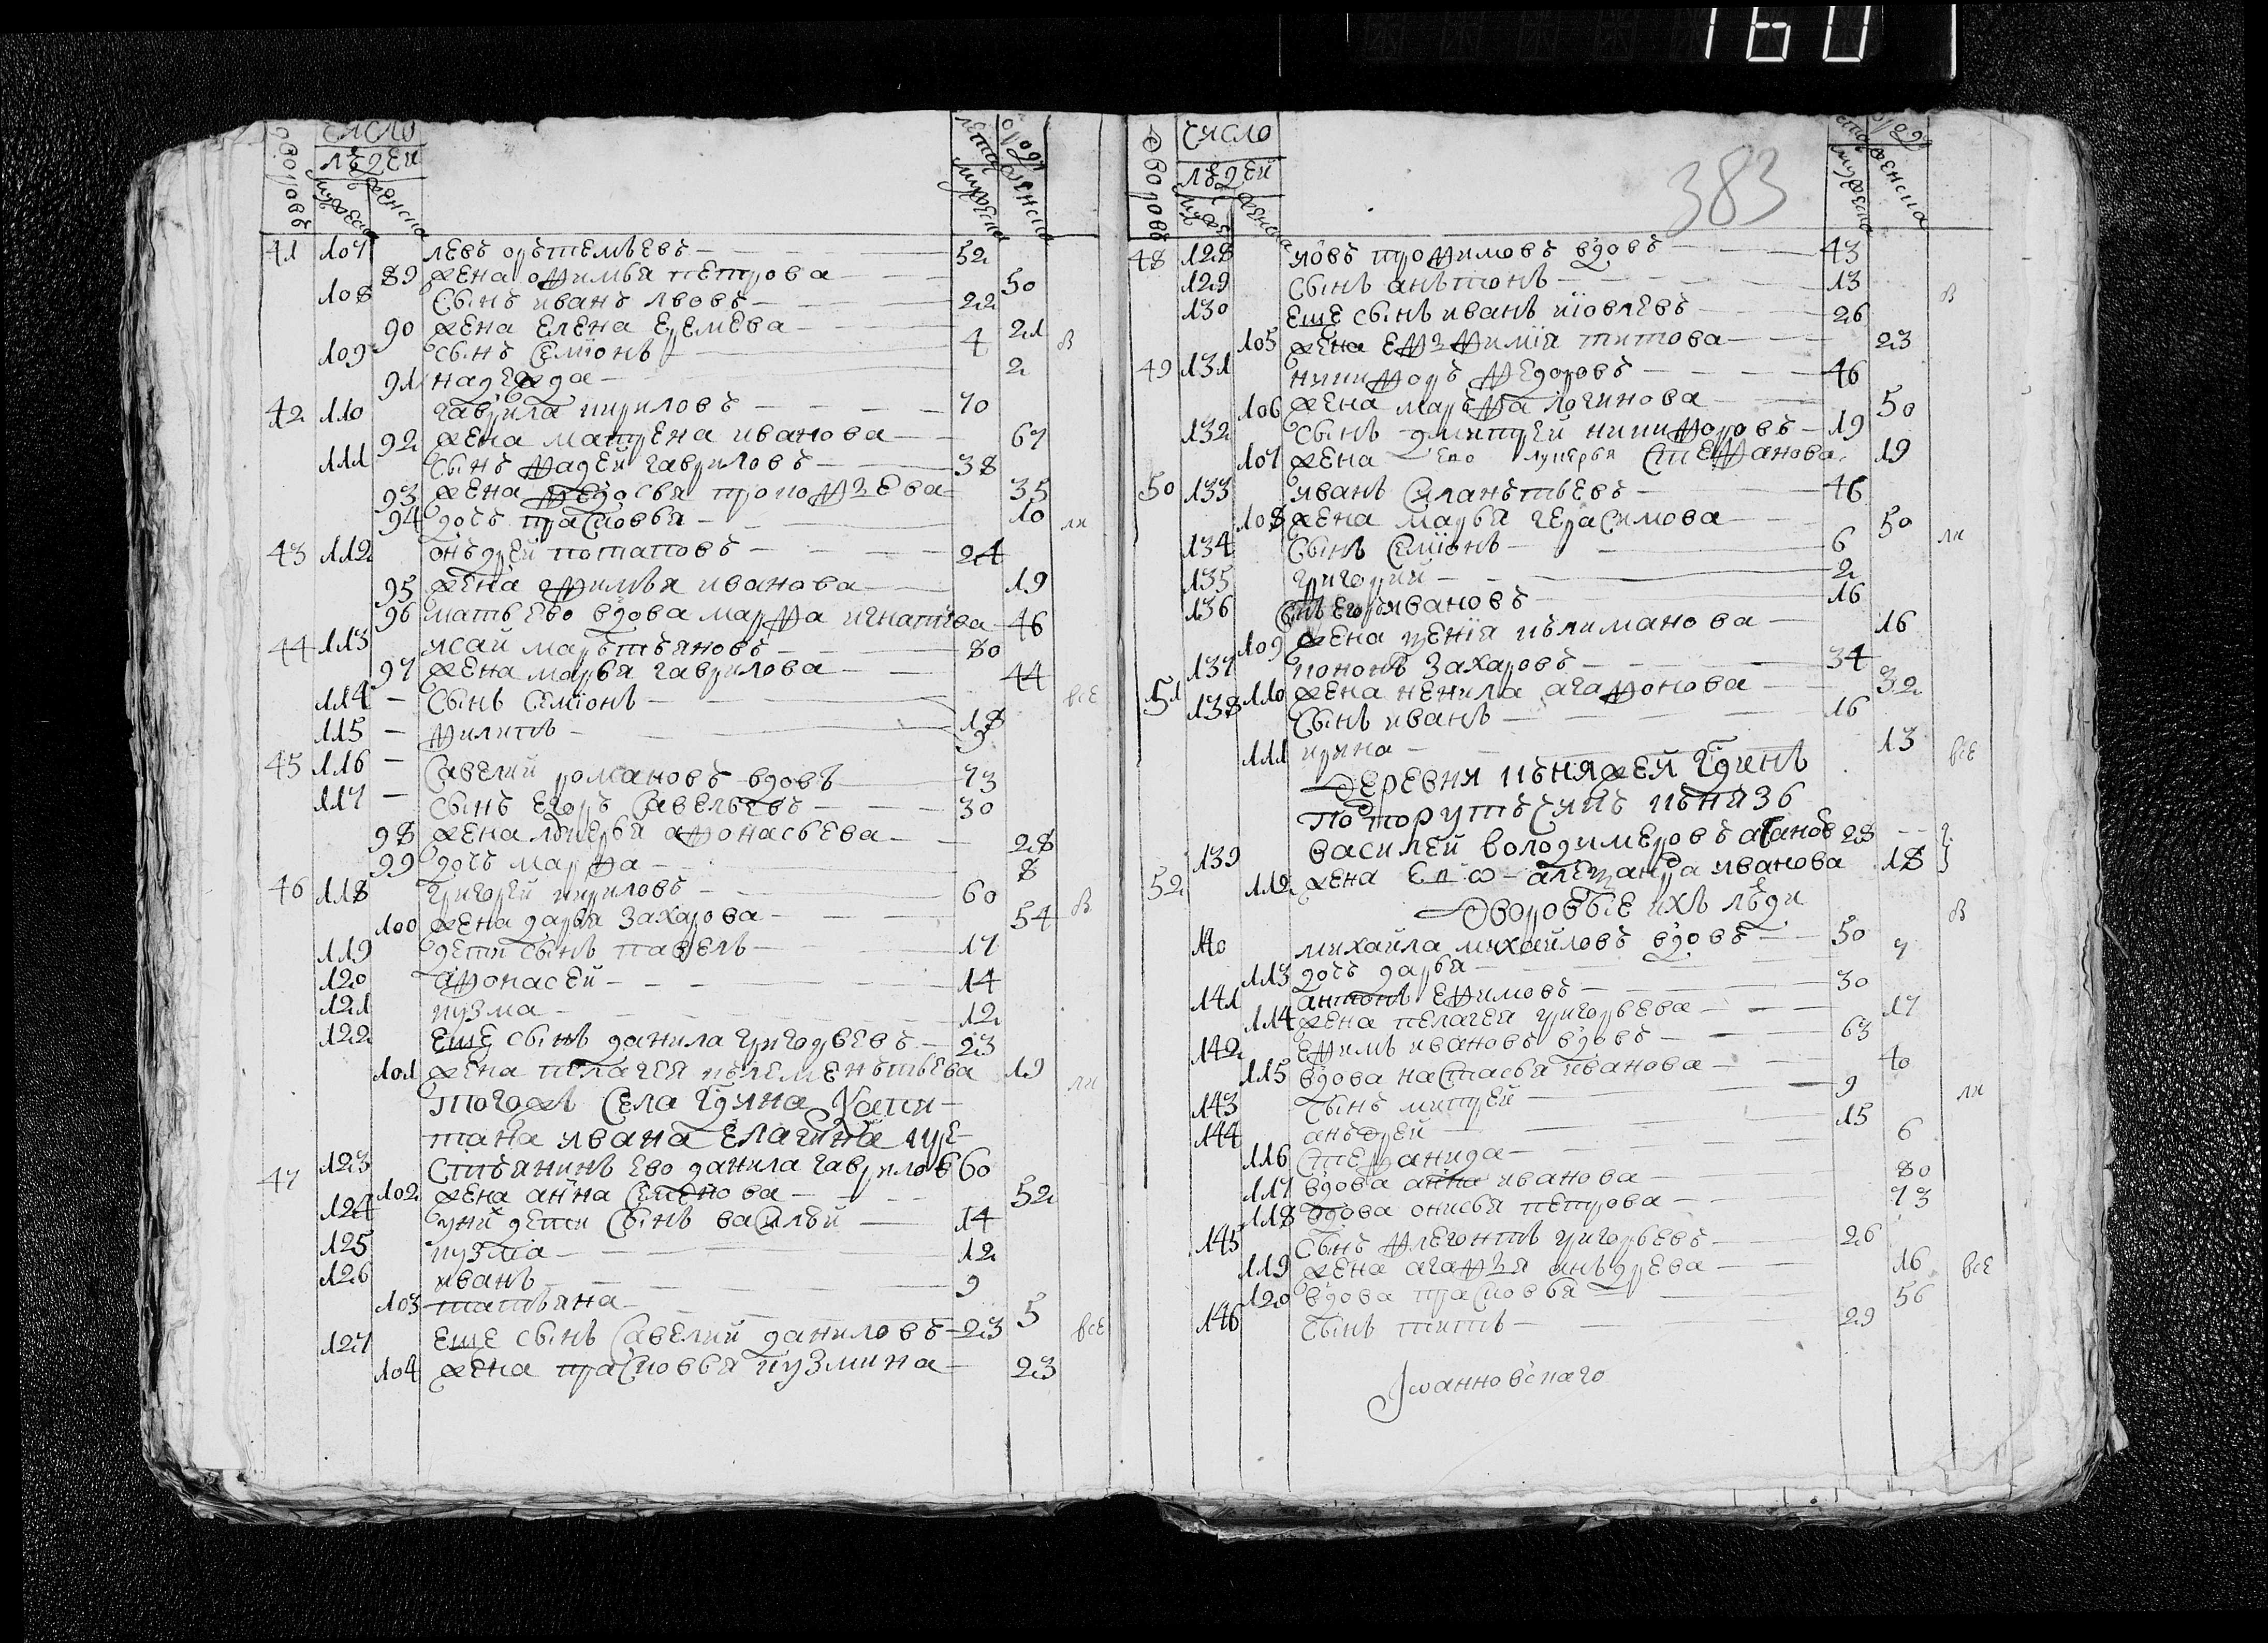 160
число
людей
дворовъ
мужеска
женска
лета
мужеска
женска
41 107 левъ орътемьевъ 52
89 жена офимья петрова 50
108 сынъ иванъ лвовъ 22
90 жена елена еремева 21
109 сынъ семионъ 4 в
91 надежда 2
42 110 гаврила кириловъ 70
92 жена матрена иванова 67
111 сынъ фадей гавриловъ 38
93 жена федосья прокофзева 35
94 дочь прасковья 10 ли
43 112 онъдрей потаповъ 24
95 жена офимья иванова 19
96 мать ево вдова марфа игнатиева 46
44 113 исай марътьяновъ 80
97 жена марья гаврилова 44
114 сынъ семионъ 18 все
115 филипъ 9
45 116 савелий романовъ вдовъ 73
117 сынъ егоръ савельевъ 30
98 жена лукерья афонасьева 28
99 дочь марфа 8
46 118 григорей кириловъ 60
100 жена дарья захарова 54 в
119 дети сынъ павелъ 17
120 афонасей 14
121 кузма 12
122 еще сынъ данила григорьевъ 23
101 жена пелагея кълеменътьева 19 ли
тогожъ села гдина капи-
тана ивана елагина кре-
47 123 стьянинъ ево данила гаврилов 60
102 жена анна семенова 52
124 у ний дети сынъ василъй 14
125 кузма 12
126 иванъ 9
103 татьяна 5
127 еще сынъ савелий даниловъ 23 все
104 жена прасковья кузмина 23
число
людей
дворовъ
мужеска
женска
383
лета
мужеска
женска
48 128 иовъ трофимовъ вдовъ 43
129 сынъ анътонъ 13 в
130 еще сынъ иванъ иовлевъ 26
105 жена ефзфимия титова 23
49 131 никифоръ федоровъ 46
106 жена маръфа логинова 50
132 сынъ дмитрей никифоровъ 19
107 жена ево лукерья стефанова 19
50 133 иванъ силанътьевъ 46
108 жена марья герасимова 50
134 сынъ семионъ 6 ли
135 григорий 2
136 егоръ ивановъ 16
109 жена ксения кълиманова 16
137 конанъ захаровъ 34
51 110 жена ненила агафонова 32
138 сынъ иванъ 16
111 ирина 13
деревня къняжей гдинъ все
подпорутъчикъ князь
139 василей володимеровъ 28
52 112 жена ево алезандра иванова 18
дворовые ихъ люди в
140 михайла михайловъ вдовъ 50
113 дочь дарья 7
141 антонъ ефимовъ 30
114 жена пелагея григорьева 17
142 ефимъ ивановъ вдовъ 63
115 вдова настасья иванова 40
143 сынъ митрей 9 ли
144 анъдрей 15
116 степанида 6
117 вдова анна иванова 80
118 вдова онисья петрова 73
145 сынъ флегонтъ григорьевъ 26
119 жена агафзя анъдрева 16 все
120 вдова прасковья 56
146 сынъ титъ 29
Іѡанновскаго